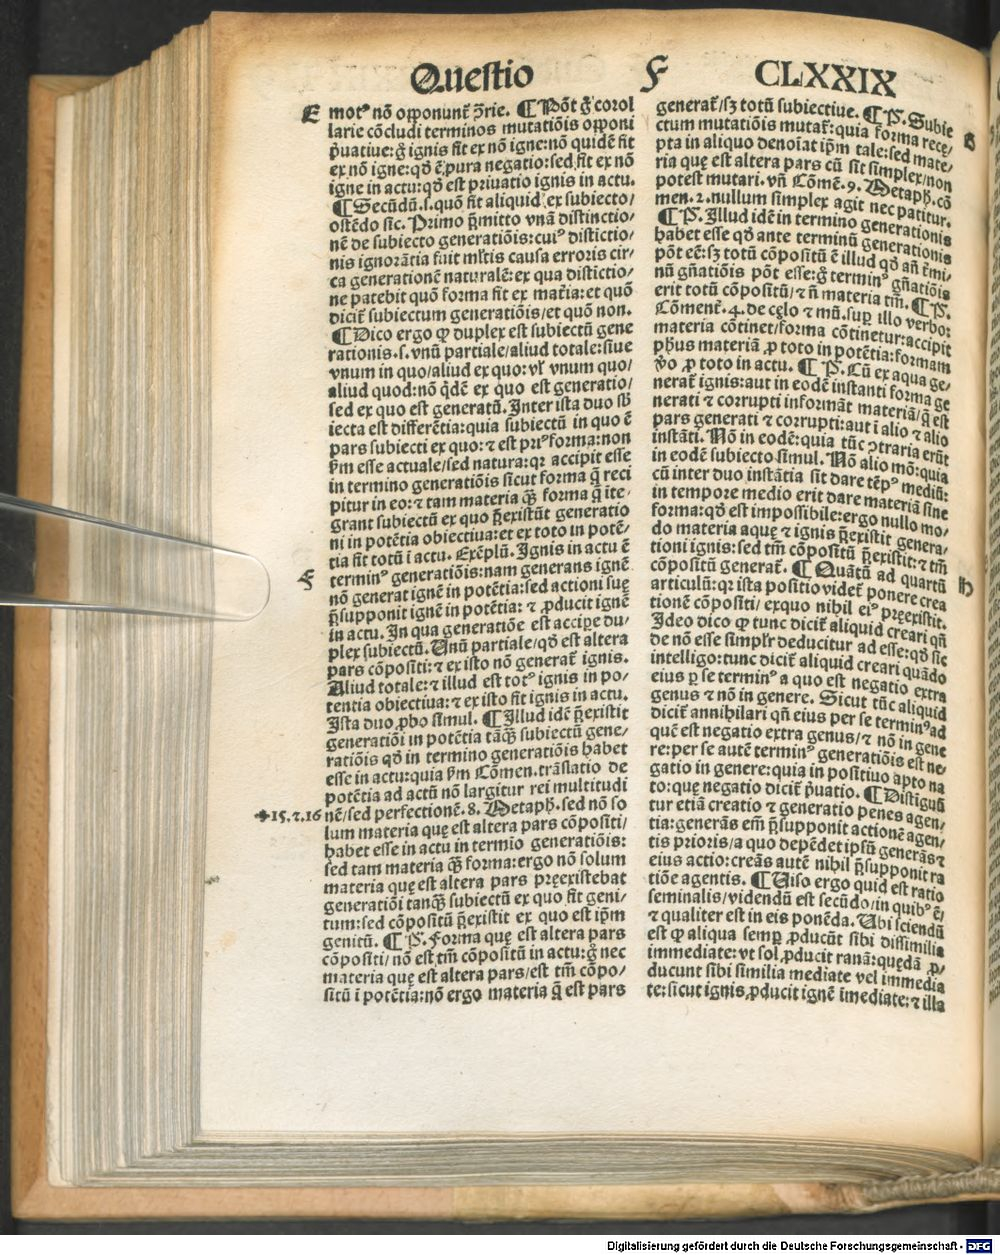 Questio F CLXXIX
E motꝰ nō opponunt᷑ ꝯ̄rie. ¶ Pōt g̊ corol
larie cōcludi terminos mutatiōis opponi
p̄uatiue: g̊ ignis fit ex nō igne: nō quidē fit
ex nō igne: qd̄ ē pura negatio: sed fit ex nō
igne in actu: qd̄ est priuatio ignis in actu.
¶ Secūdū .s. quō fit aliquid ex subiecto/
ostēdo sic. Primo p̄mitto vnā distinctio/
nē de subiecto generatiōis: cuiꝰ distictio/
nis ignorātia fuit ml̄tis causa erroris cir/
ca generationē naturalē: ex qua distictio/
ne patebit quō forma fit ex mat̄ia: et quō
dicit᷑ subiectum generatiōis/et quō non.
¶ Dico ergo ꝙ duplex est subiectū gene
rationis .s. vnū partiale/aliud totale: siue
vnum in quo/aliud ex quo: vl̓ vnum quo/
aliud quod: nō q̇dē ex quo est generatio/
sed ex quo est generatū. Inter ista duo sb̄
iecta est differētia: quia subiectū in quo ē
pars subiecti ex quo: ⁊ est priꝰ forma: non
ẜm esse actuale/sed natura: qꝛ accipit esse
in termino generatiōis sicut forma q̄ reci
pitur in eo: ⁊ tam materia qꝫ̄ forma q̄ ite/
grant subiectū ex quo p̄existūt generatio
ni in potētia obiectiua: et ex toto in potē/
tia fit totū ī actu. Exēplū. Ignis in actu ē
F terminꝰ generatiōis: nam generans ignē
nō generat ignē in potētia: sed actioni suę
p̄supponit ignē in potētia: ⁊ ꝓducit ignē
in actu. In qua generatiōe est accipe du/
plex subiectū. Unū partiale/qd̄ est altera
pars cōpositi: ⁊ ex isto nō generat᷑ ignis.
Aliud totale: ⁊ illud est totꝰ ignis in po/
tentia obiectiua: ⁊ ex isto fit ignis in actu.
Ista duo ꝓbo simul. ¶ Illud idē p̄existit
generatiōi in potētia tāqꝫ̄ subiectū gene/
ratiōis qd̄ in termino generatiōis habet
esse in actu: quia ẜm Cōmen. trāslatio de
potētia ad actū nō largitur rei multitudi
✥15.⁊.16 nē/sed perfectionē. 8. Metaph̄. sed nō so
lum materia quę est altera pars cōpositi/
habet esse in actu in termio generatiōis:
sed tam materia qꝫ̄ forma: ergo nō solum
materia quę est altera pars pręexistebat
generatiōi tanqꝫ̄ subiectū ex quo fit geni/
tum: sed cōpositū p̄existit ex quo est ip̄m
genitū. ¶ P̄. Forma quę est altera pars
cōpositi/ nō est tm̄ cōpositū in actu: g̊ nec
materia quę est altera pars/est tm̄ cōpo/
sitū ī potētia: nō ergo materia q̄ est pars
generat᷑/sꝫ totū subiectiue. ¶ P̄. Subie
ctum mutatiōis mutat᷑: quia forma rece/ G
pta in aliquo denoīat ip̄m tale: sed mate/
ria que est altera pars cū sit simplex/non
potest mutari. vn̄ Cōmē. 9. Metaph̄. cō
men. 2. nullum simplex agit nec patitur.
¶ P̄. Illud idē in termino generationis
habet esse qd̄ ante terminū generationis
pōt eē: sꝫ totū cōpositū ē illud qd̄ an̄ t̄mi/
nū gn̄atiōis pōt esse: g̊ terminꝰ gn̄atiōis
erit totū cōpositū/⁊ n̄ materia tm̄. ¶ P̄.
Cōment. 4. de cęlo ⁊ mū. suꝑ illo verbo:
materia cōtinet/forma cōtinetur: accipit
ph̄us materiā ꝓ toto in potētia: formam
v̊o ꝓ toto in actu. ¶ P̄. Cū ex aqua ge/
nerat᷑ ignis: aut in eodē instanti forma ge
nerati ⁊ corrupti informāt materiā/q̄ est
pars generati ⁊ corrupti: aut ī alio ⁊ alio
instāti. Nō in eodē: quia tūc ꝯtraria erūt
in eodē subiecto simul. Nō alio mō: quia
cū inter duo instātia sit dare tēpꝰ mediū:
in tempore medio erit dare materiā sine
forma: qd̄ est impossibile: ergo nullo mo/
do materia aquę ⁊ ignis p̄existit genera/
tioni ignis: sed tm̄ cōpositū p̄existit: ⁊ tm̄
cōpositū generat᷑. ¶ Quātū ad quartū H
articulū: qꝛ ista positio videt᷑ ponere crea
tionē cōpositi/ exquo nihil eiꝰ pręexistit.
Ideo dico ꝙ tunc dicit᷑ aliquid creari qn̄
de nō esse simpl̓r deducitur ad esse: qd̄ sic
intelligo: tunc dicit᷑ aliquid creari quādo
eius ꝑ se terminꝰ a quo est negatio extra
genus ⁊ nō in genere. Sicut tūc aliquid
dicit᷑ annihilari qn̄ eius per se terminꝰ ad
quē est negatio extra genus/⁊ nō in gene
re: per se autē terminꝰ generatiōis est ne/
gatio in genere: quia in positiuo apto na
to: que negatio dicit᷑ p̄uatio. ¶ Distiguū
tur etiā creatio ⁊ generatio penes agen/
tia: generās em̄ p̄supponit actionē agen/
tis prioris/a quo depēdet ipsū generās ⁊
eius actio: creās autē nihil p̄supponit ra
tiōe agentis. ¶ Viso ergo quid est ratio
seminalis/videndū est secūdo/in quibꝰ ē/
⁊ qualiter est in eis ponēda. Ubi sciendū
est ꝙ aliqua semꝑ ꝓducūt sibi dissimilia
immediate: vt sol ꝓducit ranā: quędā ꝓ/
ducunt sibi similia mediate vel immedia
te: sicut ignis ꝓducit ignē īmediate: ⁊ illa
Digitalisierung gefördert durch die Deutsche Forschungsgemeinschaft - DFG